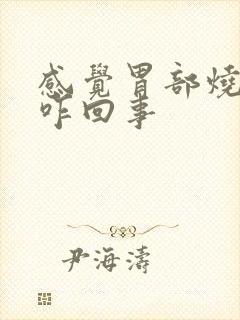 感覺胃部燒
咋回事
尹海濤